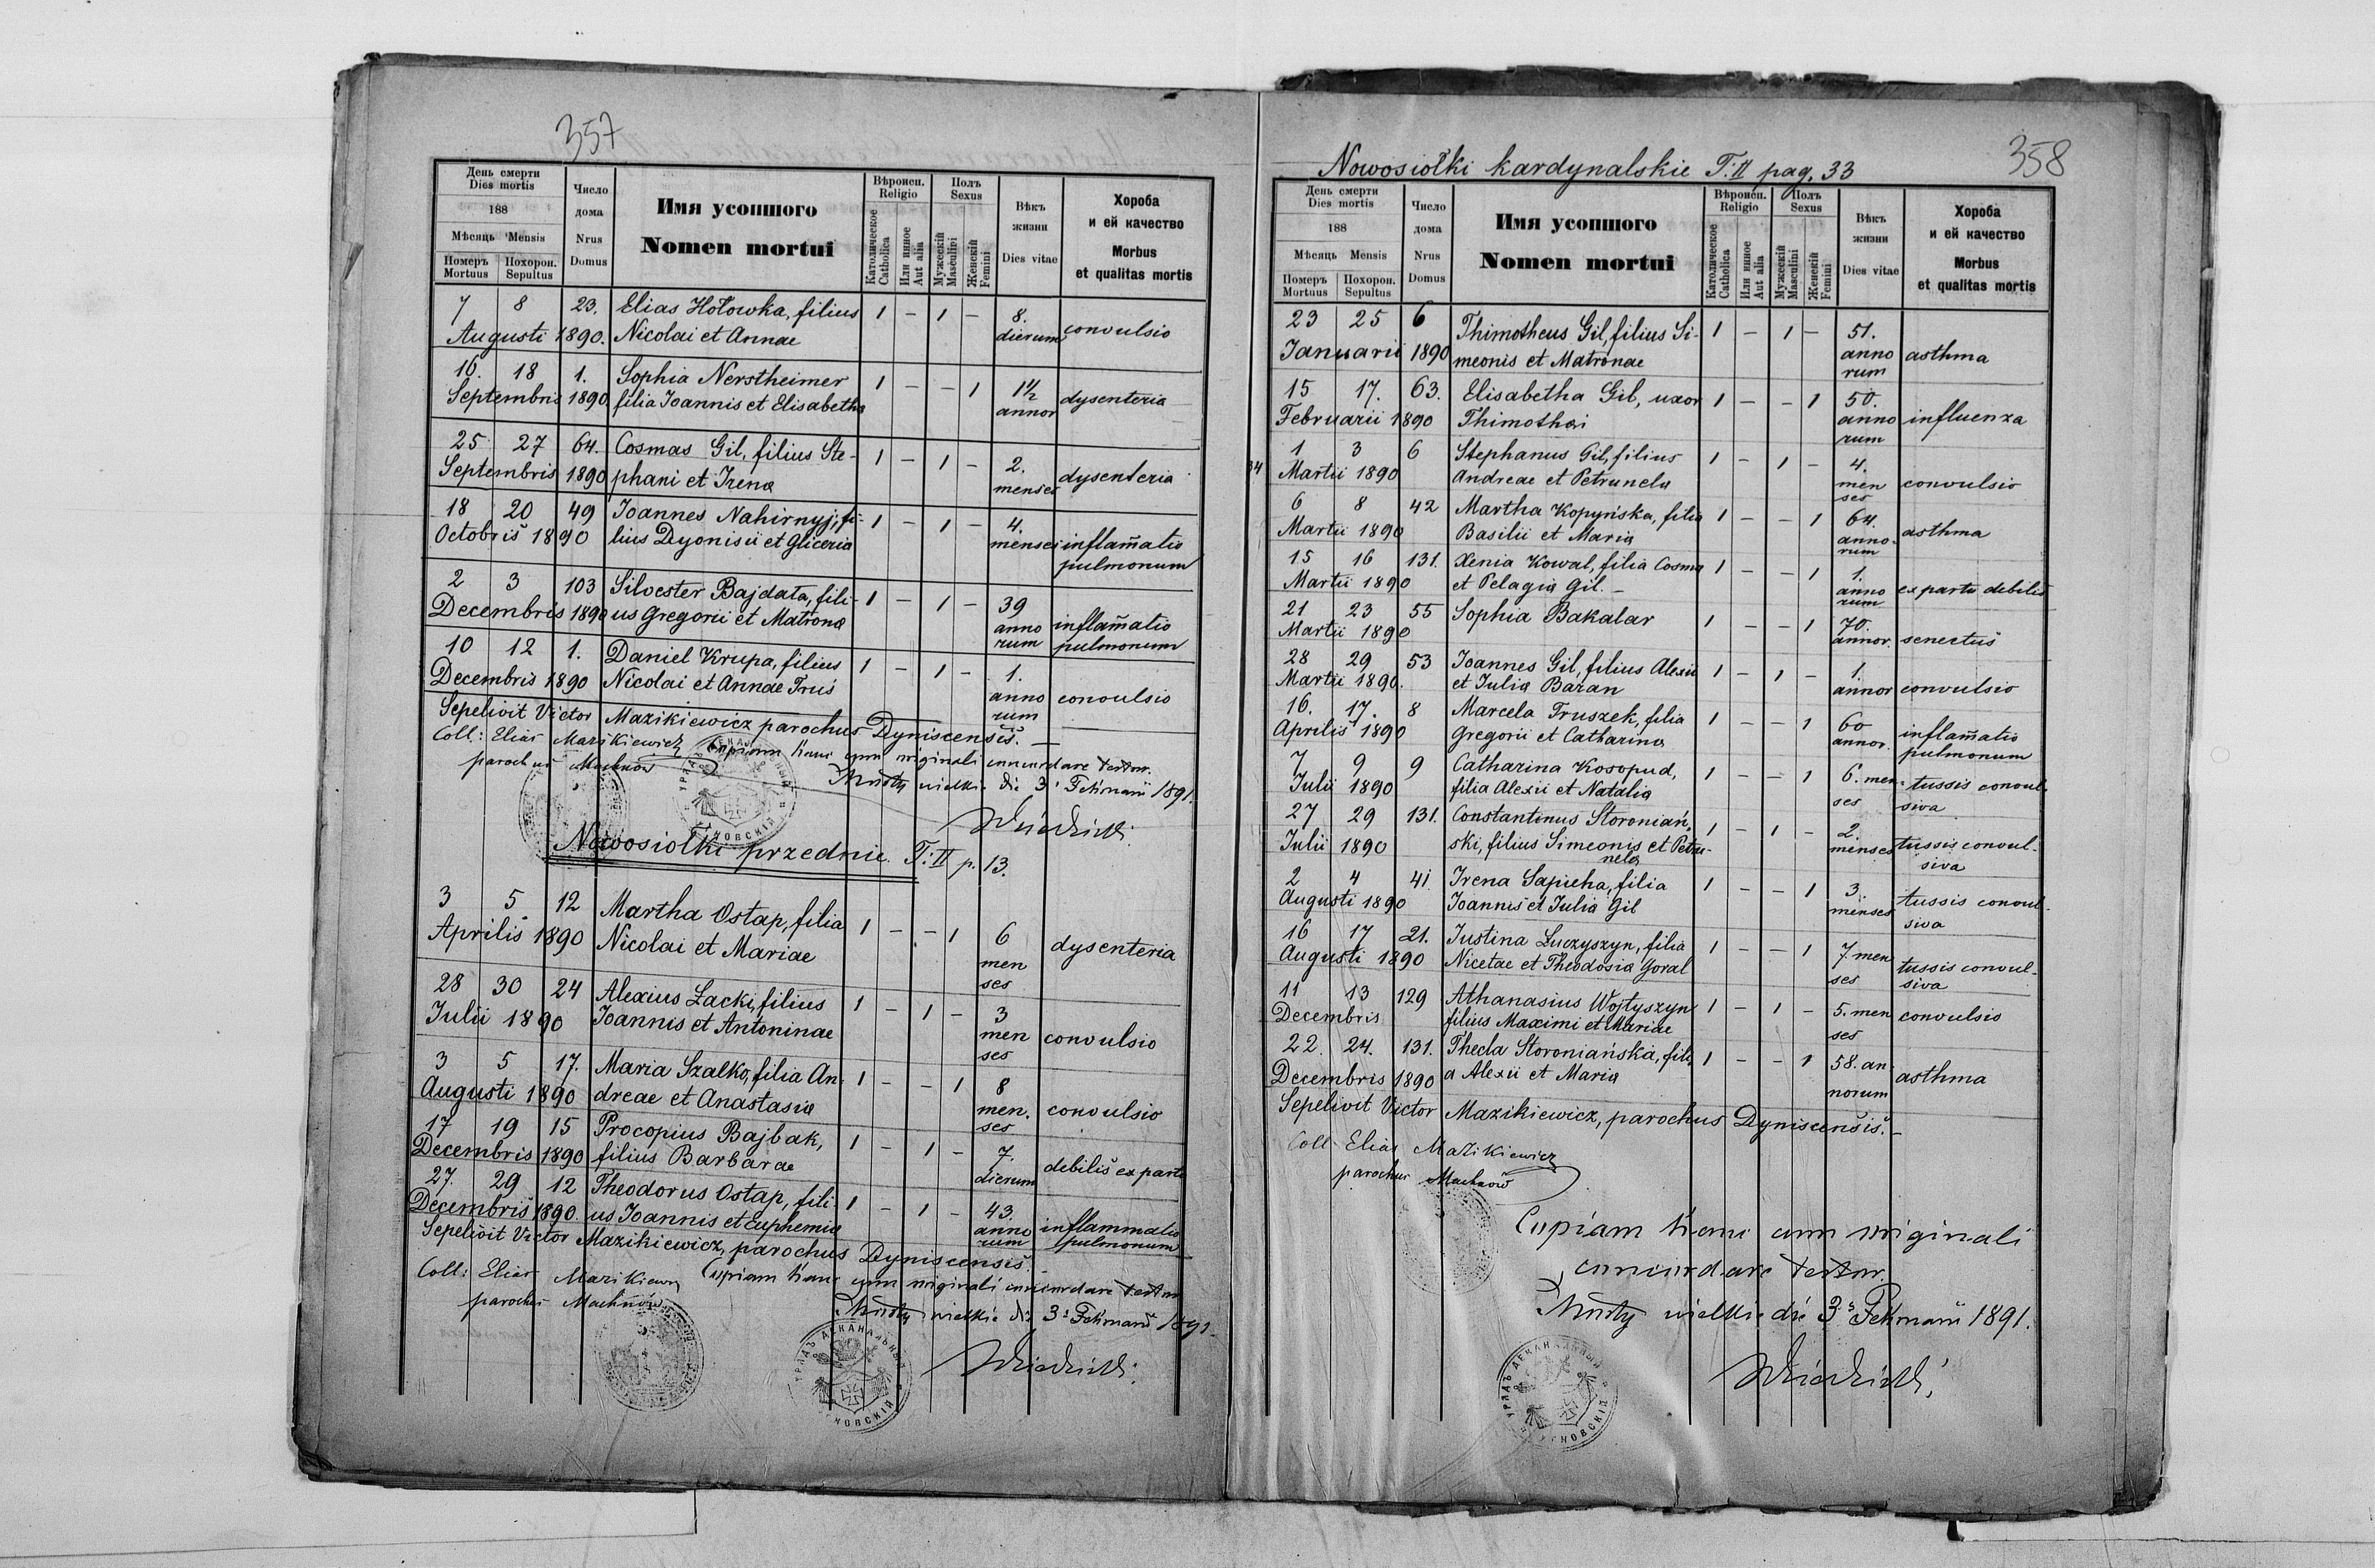 357
День смерти
Dies mortis
188
Мѣсяць Mensis
Померъ
Mortuus
Похорон.
Sepultus
Число
дома
Nrus
Domus
Имя усопшого
Nomen mortui
Вѣроисп.
Religio
Католическое
Catholica
Или инное
Aut alia
Полъ
Sexus
Мужескій
Masculini
Женскій
Femini
Вѣкъ
жизни
Dies vitae
Хороба
и ей качество
Morbus
et qualitas mortis
7 8 23. Elias Hołowka, filius 1 – 1 – 8.
Augusti 1890. Nicolai et Annae dierum convulsio
16. 18 1. Sophia Nerstheimer 1 – – 1 1½
Septembris 1890 filia Joannis et Elisabetha annor dysenteria
25 27 64. Cosmas Gil, filius Ste- 1 – 1 – 2.
Septembris 1890 phani et Irena menses dysenteria
18 20 49 Joannes Nahirnyj, fi- 1 – 1 – 4.
Octobris 1890 lius Dyonisii et Gliceria menses inflam̃atio
pulmonum
2 3 103 Silvester Bajdała, fili- 1 – 1 – 39
Decembris 1890 us Gregorii et Matrona anno inflam̃atio
rum pulmonum
10 12 1. Daniel Krupa, filius 1 – 1 – 1.
Decembris 1890 Nicolai et Annae Truś anno convulsio
rum
Sepelivit Victor Mazikiewicz parochus Dyniscensis. –
Coll: Elias Mazikiewicz Copiam hanc cum originali concordare testor.
parochus Machnów
Mosty wielkie die 3 Februarii 1891.
Nowosiołki przednie T: II p. 13.
3 5 12 Martha Ostap, filia 1 – – 1 6
Aprilis 1890 Nicolai et Mariae men dysenteria
ses
28 30 24 Alexius Lacki, filius 1 – 1 – 3
Julii 1890 Joannis et Antoninae men convulsio
ses
3 5 17. Maria Szalko, filia An- 1 – – 1 8
Augusti 1890 dreae et Anastasia men. convulsio
ses
17 19 15 Procopius Bajbak, 1 – 1 – 7.
Decembris 1890 filius Barbarae dierum debilis ex partu
27. 29 12 Theodorus Ostap, fili- 1 – 1 – 43
Decembris 1890. us Joannis et Euphemia anno inflammatio
rum pulmonum
Sepelivit Victor Mazikiewicz, parochus Dyniscensis.
Coll: Elias Mazikiewicz Copiam hanc cum originali concordare testor
parochus Machnów
Mosty wielkie die 3 Februarii 1891.
УРЯДЪ ДЕКАНАЛЬНЫЙ
358
Nowosiołki kardynalskie T: II pag. 33
День смерти
Dies mortis
188
Мѣсяць Mensis
Померъ
Mortuus
Похорон.
Sepultus
Число
дома
Nrus
Domus
Имя усопшого
Nomen mortui
Вѣроисп.
Religio
Католическое
Catholica
Или инное
Aut alia
Полъ
Sexus
Мужескій
Masculini
Женскій
Femini
Вѣкъ
жизни
Dies vitae
Хороба
и ей качество
Morbus
et qualitas mortis
23 25 6 Thimotheus Gil, filius Si- 1 – 1 – 51.
Januarii 1890 meonis et Matronae anno asthma
rum
15 17. 63. Elisabetha Gil, uxor 1 – – 1 50.
Februarii 1890 Thimothei anno influenza
rum
1 3 6 Stephanus Gil, filius 1 – 1 – 4.
34 Martii 1890 Andreae et Petrunela men convulsio
ses
6 8 42 Martha Kopyńska, filia 1 – – 1 64.
Martii 1890 Basilii et Maria anno- asthma
rum
15 16 131. Xenia Kowal, filia Cosma 1 – – 1 1.
Martii 1890 et Pelagia Gil. – anno ex partu debilis
rum
21 23 55 Sophia Bakalar 1 – – 1 70.
Martii 1890 annor. senectus
28 29 53 Joannes Gil, filius Alexii 1 – 1 – 1.
Martii 1890. et Julia Baran annor convulsio
16. 17. 8 Marcela Truszek, filia 1 – – 1 60
Aprilis 1890 Gregorii et Catharina annor. inflam̃atio
pulmonum
7 9 9 Catharina Kosopud, 1 – – 1 6. men- tussis convul-
Julii 1890 filia Alexii et Natalia ses siva
27 29 131. Constantinus Storoniań- 1 – 1 – 2.
Julii 1890 ski, filius Simeonis et Petru- menses tussis convul-
nela siva
2 4 41. Irena Sapieha, filia 1 – – 1 3.
Augusti 1890 Joannis et Julia Gil menses tussis convul-
siva
16 17 21. Justina Łuczyszyn, filia 1 – – 1 7 men
Augusti 1890 Nicetae et Theodosia Goral ses tussis convul-
siva
11 13 129 Athanasius Wojtyszyn 1 – 1 – 5. men convulsio
Decembris filius Maximi et Mariae ses
22. 24. 131. Thecla Storoniańska, fili- 1 – – 1 58. an-
Decembris 1890 a Alexii et Maria norum asthma
Sepelivit Victor Mazikiewicz, parochus Dyniscensis. –
Coll Elias Mazikiewicz
parochus Machnów
Copiam hanc cum originali
concordare testor.
Mosty wielkie die 3 Februarii 1891.
УРЯДЪ ДЕКАНАЛЬНЫЙ